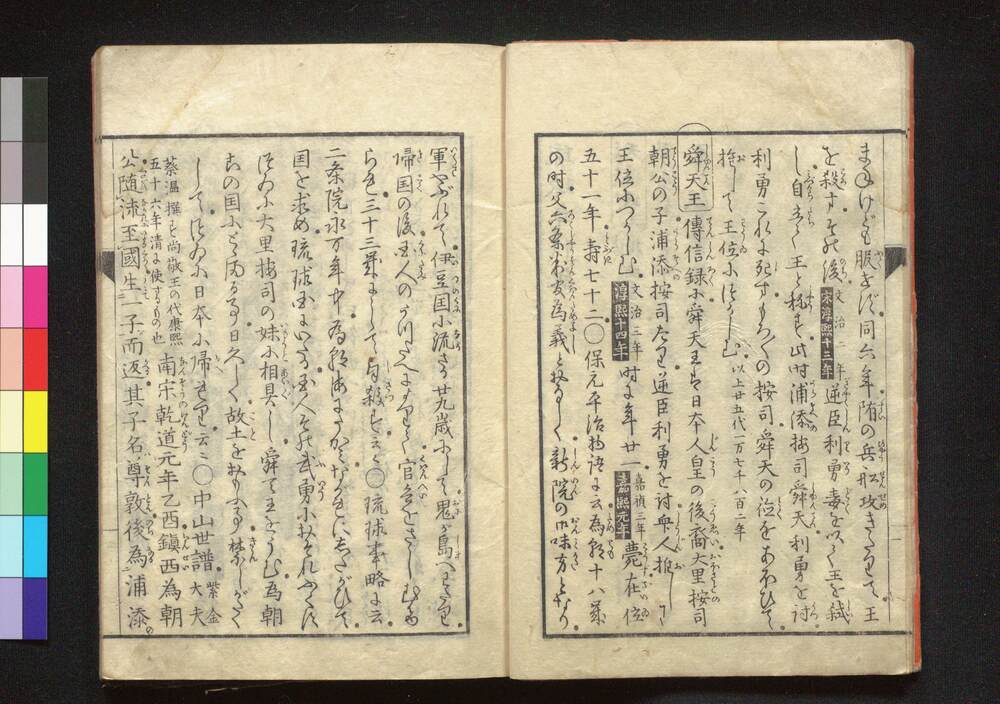 まぬけども服さず同六年隋の兵船攻きたりて王
を殺す其後文治二年宋淳熙十三年逆臣利勇毒を以て王を弑
し自立て王と称す此時浦添按司舜天利勇を討
利勇これに死すもろ〳〵の按司舜天の位をあふひて
推して王位につかしむ以上廿五代一万七千八百二年
舜天王傳信録に舜天王は日本人皇の後裔大里按司
朝公の子浦添按司たり逆臣利勇を討衆人推して
王位につかしむ文治三年淳熙十四年時に年廿一嘉禎三年嘉熙元年薨在位
五十一年寿七十二〇保元平治物語に云為朝十八歳
の時父六条判官為義とともに新院の味方となり
軍やぶれて伊豆国に流さる廿九歳にして鬼が島へわたり
帰国の後国人のうつたへによりて官兵をさしむけ
らる三十三歳にして自殺すと云々〇琉球事略に云
二条院永万年中為朝海にうかび流にしたがひて
国を求め琉球国にいたる国人其武勇におそれふくす
つひに大里按司の妹に相具し舜天王をうむ為朝
此の国にとゞまる事日久しく故土をおもふ事禁じがたく
してつひに日本に帰れり云々〇中山世譜紫金大夫
蔡温撰す尚敬王の代康熙五十六年清に使するもの也南宋乾道元年乙酉鎮西為朝
公随流至國生一子而返其子名尊敦後為浦添